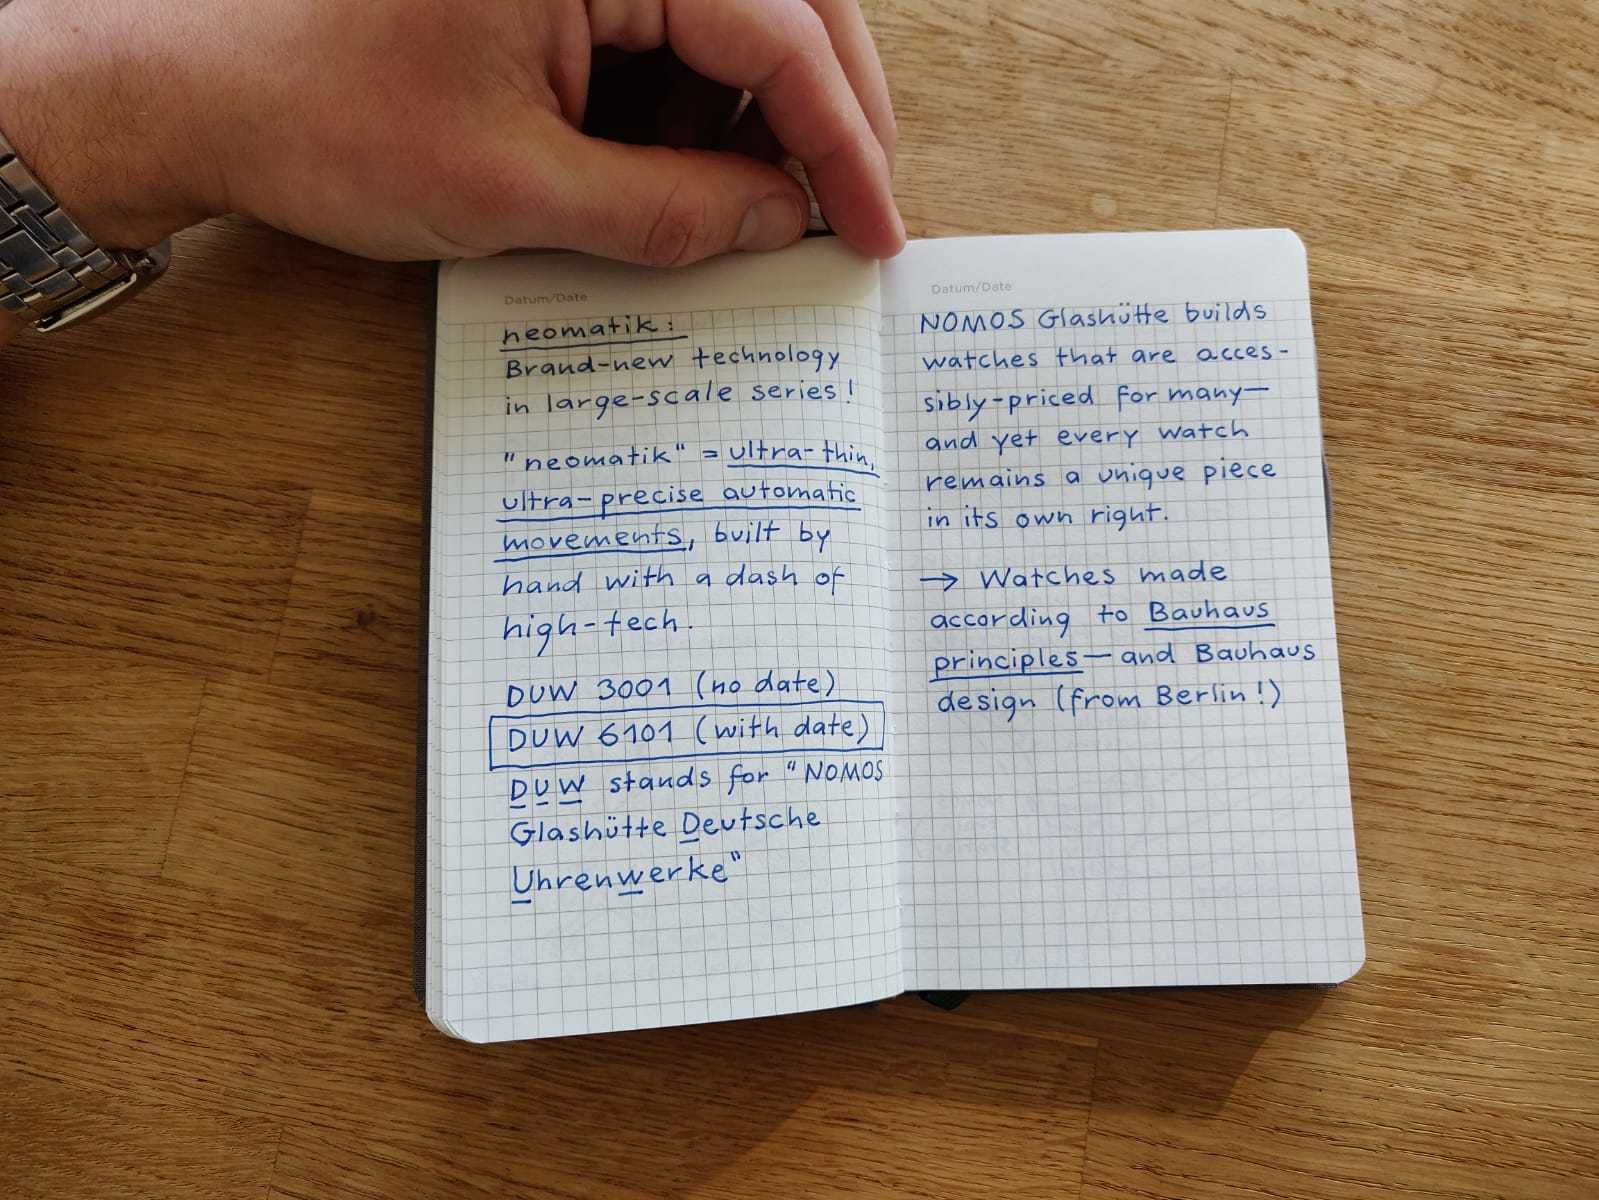 Datum/Date
neomatik:
Brand-new technology
in large-scale series!
"neomatik" = ultra-thin,
ultra-precise automatic
movements, built by
hand with a dash of
high-tech.
DUW 3001 (no date)
DUW 6101 (with date)
DUW stands for "NOMOS
Glashütte Deutsche
Uhrenwerke"
Datum/Date
NOMOS Glashütte builds
watches that are acces-
sibly-priced for many—
and yet every watch
remains a unique piece
in its own right.
→ Watches made
according to Bauhaus
principles—and Bauhaus
design (from Berlin!)